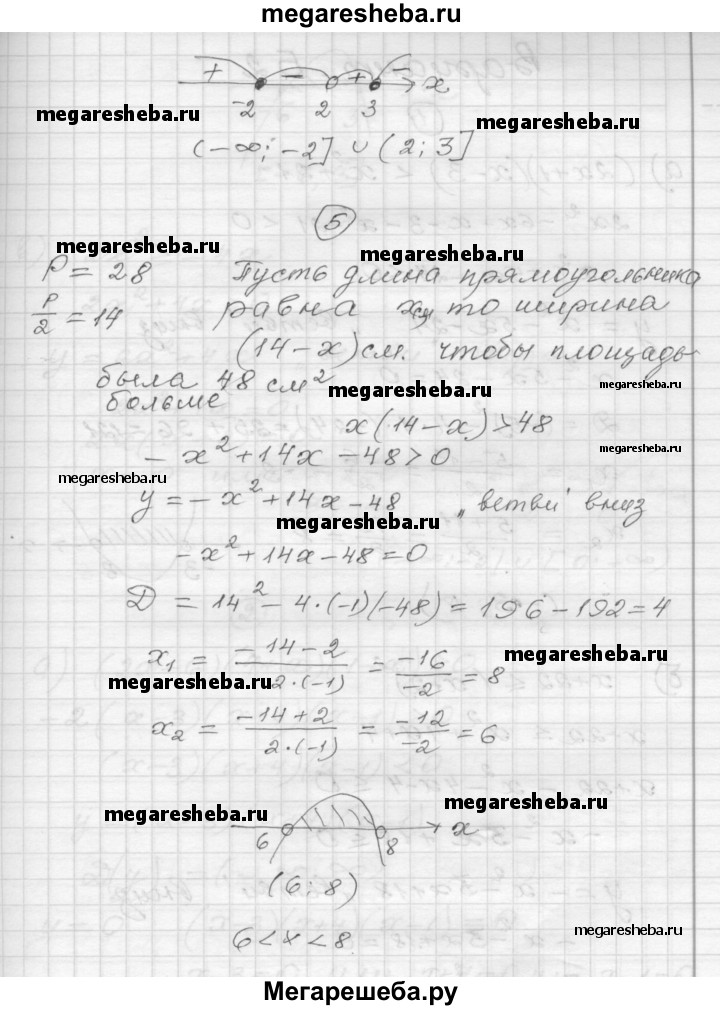 megaresheba.ru
+ − + − x
-2 2 3
megaresheba.ru megaresheba.ru
(-∞; -2] ∪ (2; 3]
5
megaresheba.ru megaresheba.ru
P = 28 Пусть длина прямоугольника
P/2 = 14 равна x см, то ширина
(14 - x) см. чтобы площадь
была 48 см²
больше
megaresheba.ru megaresheba.ru
x(14 - x) > 48
megaresheba.ru
- x² + 14x - 48 > 0
megaresheba.ru
y = - x² + 14x - 48 „ветви" вниз
megaresheba.ru
- x² + 14x - 48 = 0
D = 14² - 4·(-1)(-48) = 196 - 192 = 4
x₁ = (-14 - 2)/(2·(-1)) = -16/-2 = 8
megaresheba.ru megaresheba.ru
x₂ = (-14 + 2)/(2·(-1)) = -12/-2 = 6
megaresheba.ru megaresheba.ru
6 8 x
(6; 8)
megaresheba.ru
6 < x < 8
Мегарешеба.ру